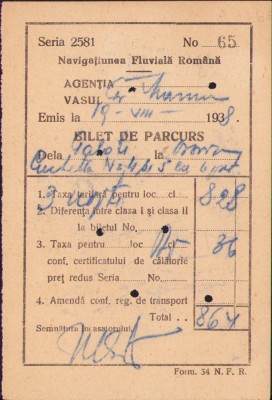 Seria 2581 No 65
Navigațiunea Fluvială Română
AGENȚIA
VASUL
Emis la 19-VIII- 1938.
BILET DE PARCURS
Dela Galați la
1. Taxa tarifară pentru loc cl 828
2. Diferența între clasa I și clasa II
la biletul No.
3. Taxa pentru loc 36
conf. certificatului de călătorie
preț redus Seria No.
4. Amendă conf. reg. de transport
Total . . 864
Semnătura încasatorului
Form. 34 N. F. R.